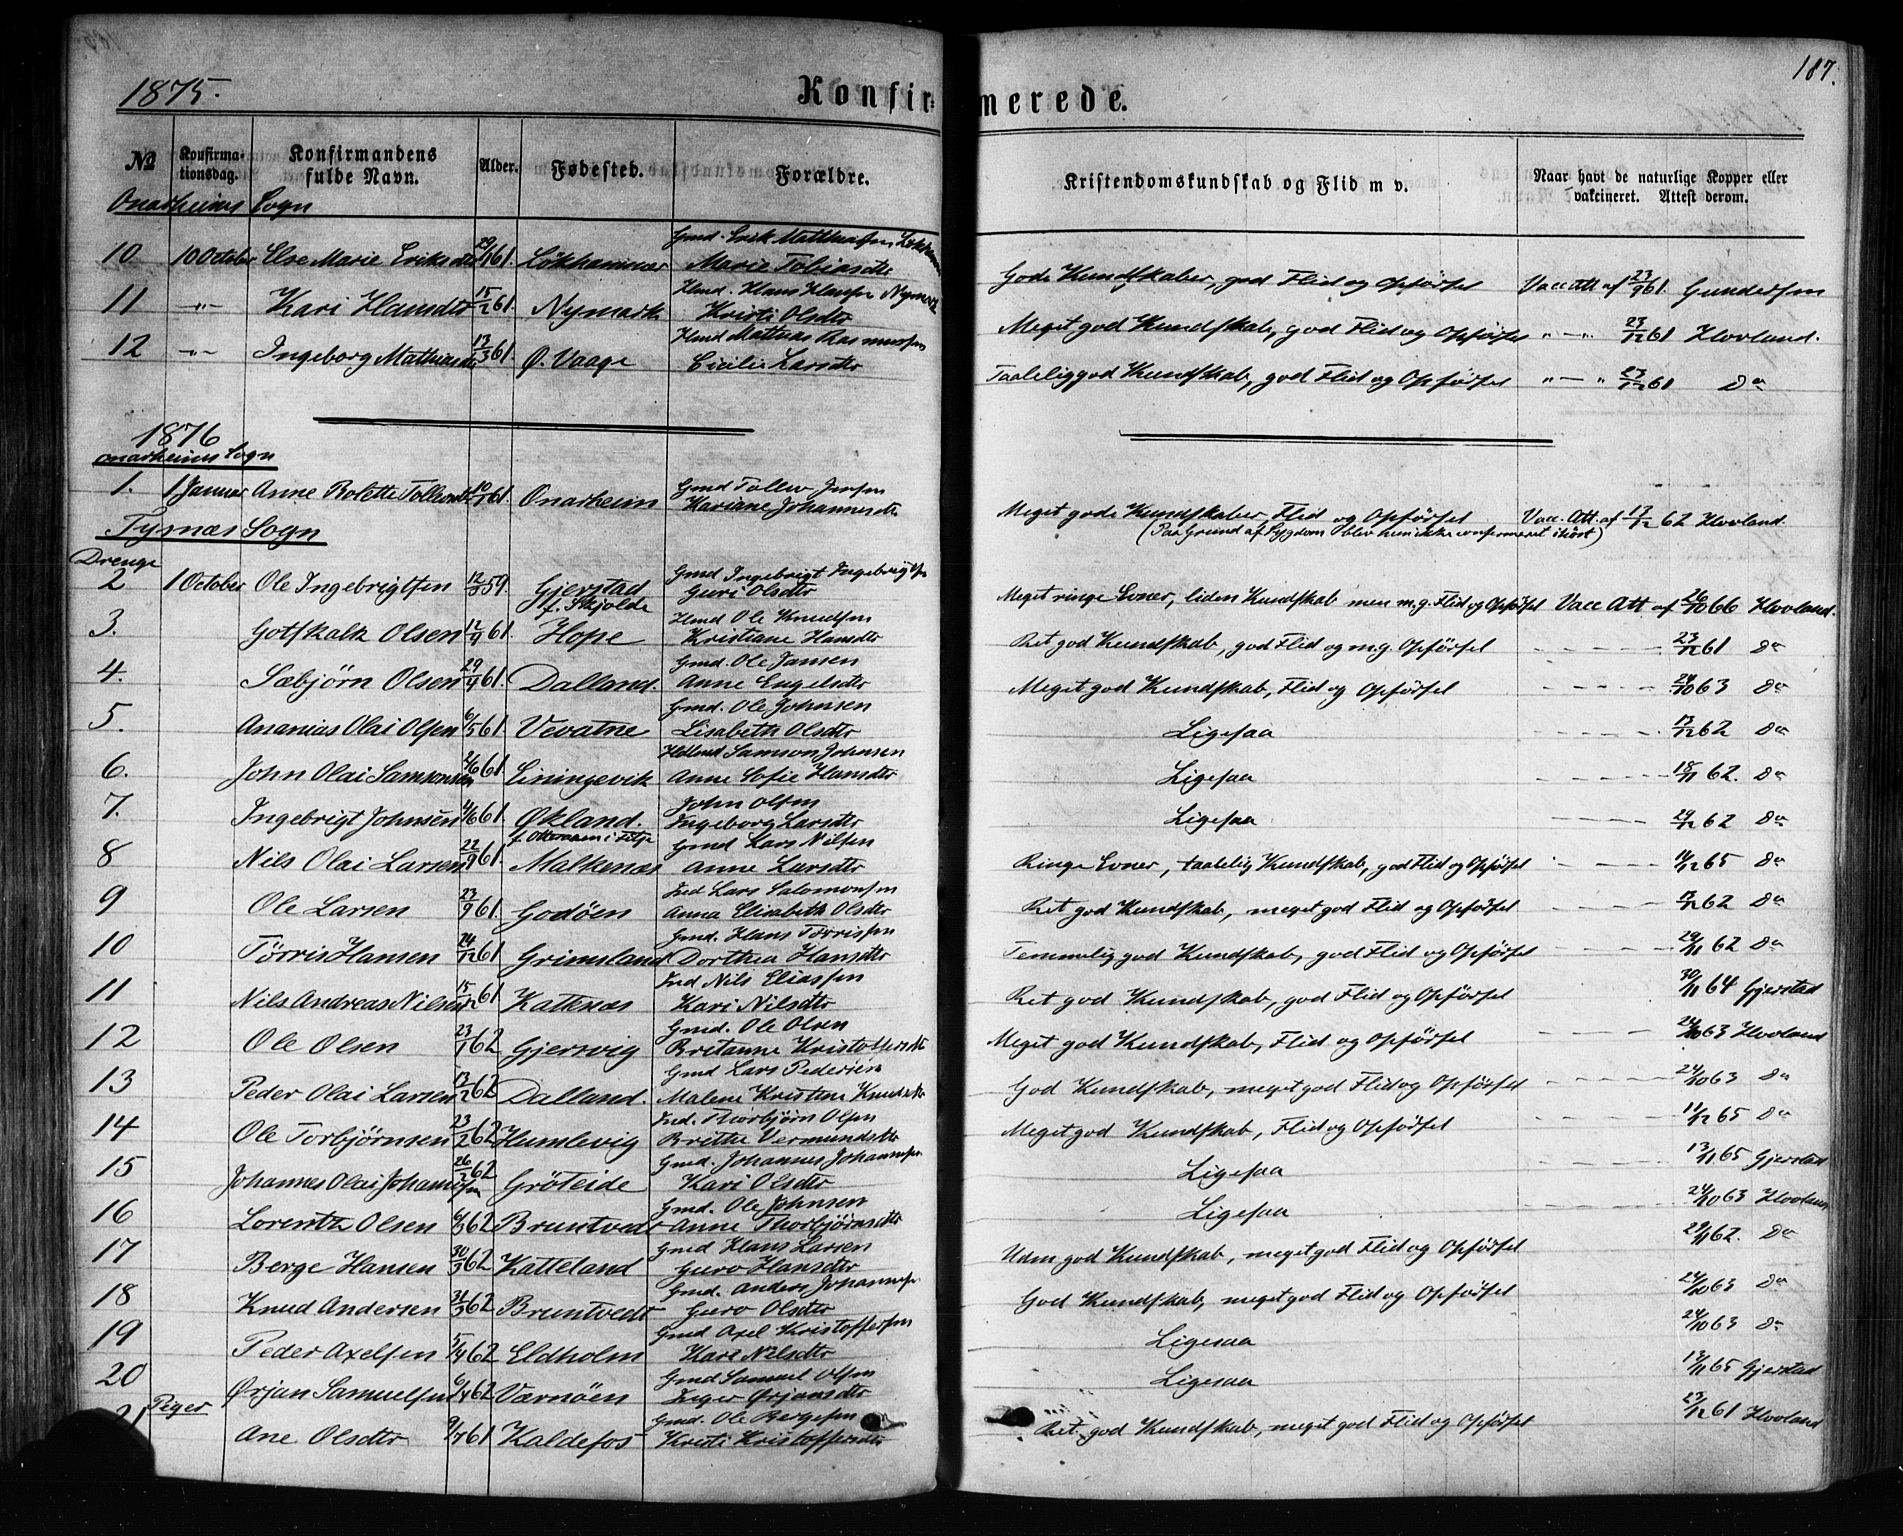 187.
1875.
Konfirmerede.
No
Konfirmationsdag.
Konfirmandens fulde Navn.
Alder.
Fødested.
Forældre.
Kristendomskundskab og Flid m v.
Naar havt de naturlige Kopper eller vakcineret. Attest derom.
Onarheims Sogn
10 10 October Else Marie Eriksdtr 61. Løkhammer Gmd. Erik Matthiassen Marie Tobiasdtr Gode Kundskaber, god Flid og Opførsel Vacc Att af 23/9 61. Gundersen
11 -"- Kari Hansdtr 15/2 61. Nymark Hmd. Hans Hansen Nymark Kristi Olsdtr Meget god Kundskab, god Flid og Opførsel " — " 23/12 61 Hovland.
12 -"- Ingeborg Mathiasdtr 13/3 61. Ø. Vaage Hmd Mattias Rasmussen Cicilie Larsdtr Taalelig god Kundskab, god Flid og Opførsel " — " 23/12 61 Do
1876
Onarheims Sogn
1. 1 Januar Anne Bolette Tollevsdtr 61. Onarheim Gmd Tollev Jensen Kariane Johannesdtr Meget gode Kundskaber, Flid og Opførsel Vacc. Att. af 17/12 62 Hovland.
(Paa Grund af Sygdom blev hun ikke confirmeret i høst)
Tysnæs Sogn
Drenge
2 1 October Ole Ingebrigtsen 59. Gjerstad f. Skjolde Gmd Ingebrigt Ingebrigtsen Guri Olsdtr Meget ringe Evner, liden Kundskab men m.g. Flid og Opførsel Vacc Att af 26/10 66 Hovland.
3. Gotskalk Olsen 61. Hope Hmd Ole Knudsen Kristiane Hansdtr Ret god Kundskab, god Flid og m.g. Opførsel 23/12 61 Do
4. Sæbjørn Olsen 61. Dalland. Gmd. Ole Jansen Anne Engelsdtr Meget god Kundskab, Flid og Opførsel 63 Do
5. Ananias Olai Olsen 6/5 61. Vevatne Gmd. Ole Johnsen Lisabeth Olsdtr Ligesaa 17/12 62 Do
6. John Olai Samsonsen 61. Liningevik Samson Johnsen Anne Sofie Hansdtr Ligesaa 18/11 62. Do
7. Ingebrigt Johnsen 61. Økland. John Olsen Ingeborg Larsdtr Ligesaa 62 Do
8 Nils Olai Larsen 22/9 61. Malkenæs Gmd Lars Nilsen Anne Larsdtr Ringe Evner, taalelig Kundskab, god Flid og Opførsel 65 Do
9 Ole Larsen 23/9 61. Godøen Ind Lars Salomonsen Anna Elisabeth Olsdtr Ret god Kundskab, meget god Flid og Opførsel 62 Do
10 Tørris Hansen 24/12 61 Grimsland Gmd. Hans Tørrissen Dorthea Hansdtr Temmelig god Kundskab, god Flid og Opførsel 29/11 62 Do
11 Nils Andreas Nilsen 61 Katlenæs Ind Nils Eliassen Kari Nilsdtr Ret god Kundskab, god Flid og Opførsel 30/11 64 Gjerstad
12 Ole Olsen 23/1 62 Gjersvig Gmd. Ole Olsen Britanne Kristoffersdtr Meget god Kundskab, Flid og Opførsel 24/10 63 Hovland
13 Peder Olai Larsen 13/2 62 Dalland. Gmd Lars Pedersen Malene Kristine Knudsdtr God Kundskab, meget god Flid og Opførsel 24/10 63 Do
14 Ole Torbjørnsen 23/2 62 Humlevig Ind. Thorbjørn Olsen Britta Vermundsdtr Meget god Kundskab, Flid og Opførsel 11/12 65 Do
15 Johannes Olai Johannessen 26/2 62 Grøteide Gmd. Johannes Johannessen Kari Olsdtr Ligesaa 13/11 65 Gjerstad
16 Lorentz Olsen 6/3 62 Bruntvedt Gmd. Ole Johnsen Anne Thorbjørnsdtr Ligesaa 24/10 63 Hovland
17 Berge Hansen 30/3 62 Katteland Gmd Hans Larsen Guro Hansdtr Udm. god Kundskab, meget god Flid og Opførsel 29/11 62. Do
18 Knud Andersen 31/3 62 Bruntvedt Gmd. Anders Johannessen Guro Olsdtr God Kundskab, meget god Flid og Opførsel 24/10 63 Do
19 Peder Axelsen 5/4 62 Eldholm Gmd Axel Kristoffersen Kari Nilsdtr Ligesaa 24/10 63 Do
20 Ørjan Samuelsen 6/4 62 Værnøen Gmd Samuel Olsen Ørjansdtr Ligesaa 13/11 65 Gjerstad
Piger
21 Ane Olsdtr 61 Kaldefos Gmd. Ole Bergesen Kristi Kristoffersdtr Ret god Kundskab, meget god Flid og Opførsel 23/12 61 Hovland